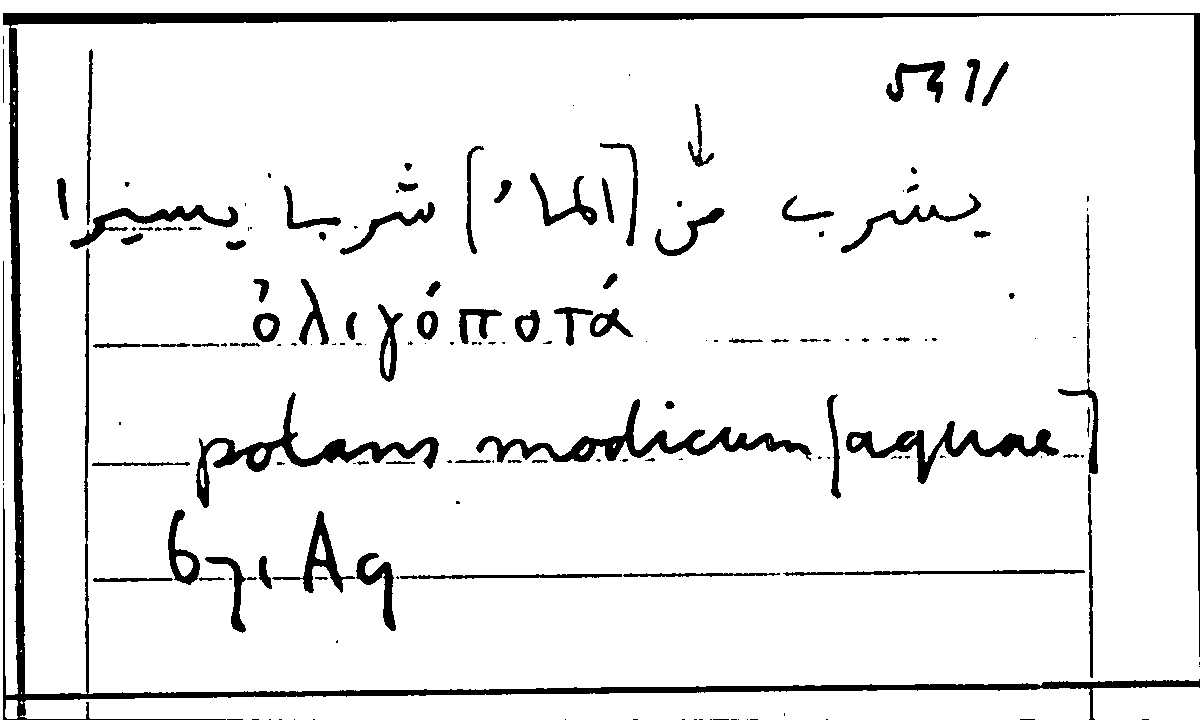 يشرب من [الماء] شربا يسيرا
ὀλιγόποτά
potans modicum [aquae]
671 A9